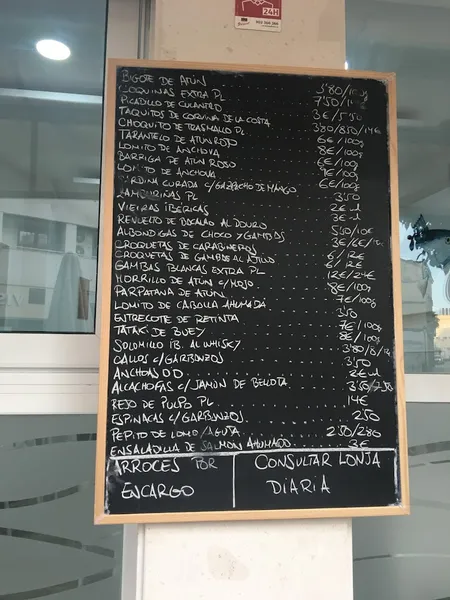 24H
BIGOTE DE ATÚN
COQUINAS EXTRA PL 3'80/100g
PICADILLO DE CULANTRO 7'50/
TAQUITOS DE CORVINA DE LA COSTA 3€/5'50
CHOQUITO DE TRASMALLO PL 3'80/8'50/14€
TARANTELO DE ATÚN ROJO 6€/100g
LOMITO DE ANCHOVA 8€/100g
BARRIGA DE ATUN ROJO 6€/100g
LOMITO DE ANCHOVA 9€/100g
SARDINA CURADA C/GAZPACHO DE MANGO 6€/100g
ZAMBURIÑAS PL 3'50
VIEIRAS IBÉRICAS 2€ ud
REVUELTO DE BACALAO AL DOURO 3€ ud
ALBONDIGAS DE CHOCO Y GAMBAS 5'50/10€
CROQUETAS DE CARABINEROS 3€/6€/
CROQUETAS DE GAMBAS AL AJILLO 6/12€
GAMBAS BLANCAS EXTRA PL 6/12€
MORRILLO DE ATUN C/MOJO 12€/24€
PARPATANA DE ATÚN 8€/100g
LOMITO DE CABALLA AHUMADA 7€/100g
ENTRECOTE DE RETINTA 3'50
TATAKI DE BUEY 7€/100g
SOLOMILLO IB. AL WHISKY 8€/100g
CALLOS C/GARBANZOS 3'80/8/
ANCHOAS OO 3'50
ALCACHOFAS C/JAMÓN DE BELLOTA 2€ ud
REJO DE PULPO PL 14€
ESPINACAS C/GARBANZOS 2'50
PEPITO DE LOMO/AGUJA 2'50/2'80
ENSALADILLA DE SALMON AHUMADO 3€
ARROCES POR
ENCARGO
CONSULTAR LONJA
DIARIA